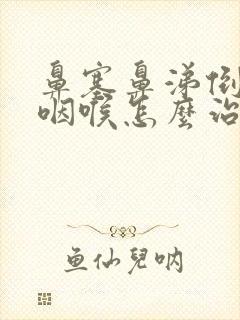 鼻塞鼻涕倒
咽喉怎麼治
鱼仙兒呐